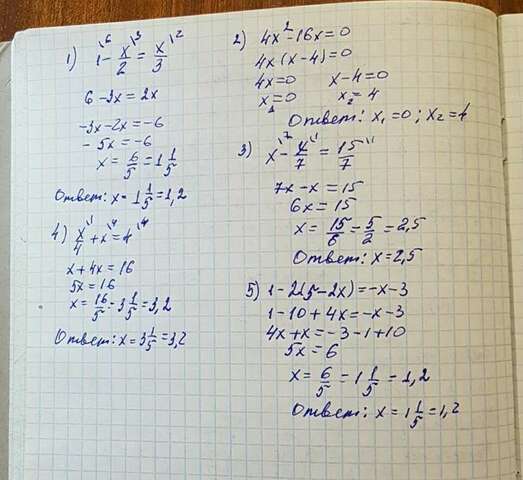 1) 1\⁶ - x/2\³ = x/3\²
6 - 3x = 2x
-3x - 2x = -6
- 5x = -6
x = 6/5 = 1 1/5
Ответ: x = 1 1/5 = 1,2
4) x/4\¹ + x\⁴ = 4\⁴
x + 4x = 16
5x = 16
x = 16/5 = 3 1/5 = 3,2
Ответ: x = 3 1/5 = 3,2
2) 4x² - 16x = 0
4x (x - 4) = 0
4x = 0 x - 4 = 0
x₁ = 0 x₂ = 4
Ответ: x₁ = 0 ; x₂ = 4
3) x\⁷ - x/7\¹ = 15/7\¹
7x - x = 15
6x = 15
x = 15/6 = 5/2 = 2,5
Ответ: x = 2,5
5) 1 - 2(5 - 2x) = -x - 3
1 - 10 + 4x = -x - 3
4x + x = -3 - 1 + 10
5x = 6
x = 6/5 = 1 1/5 = 1,2
Ответ: x = 1 1/5 = 1,2